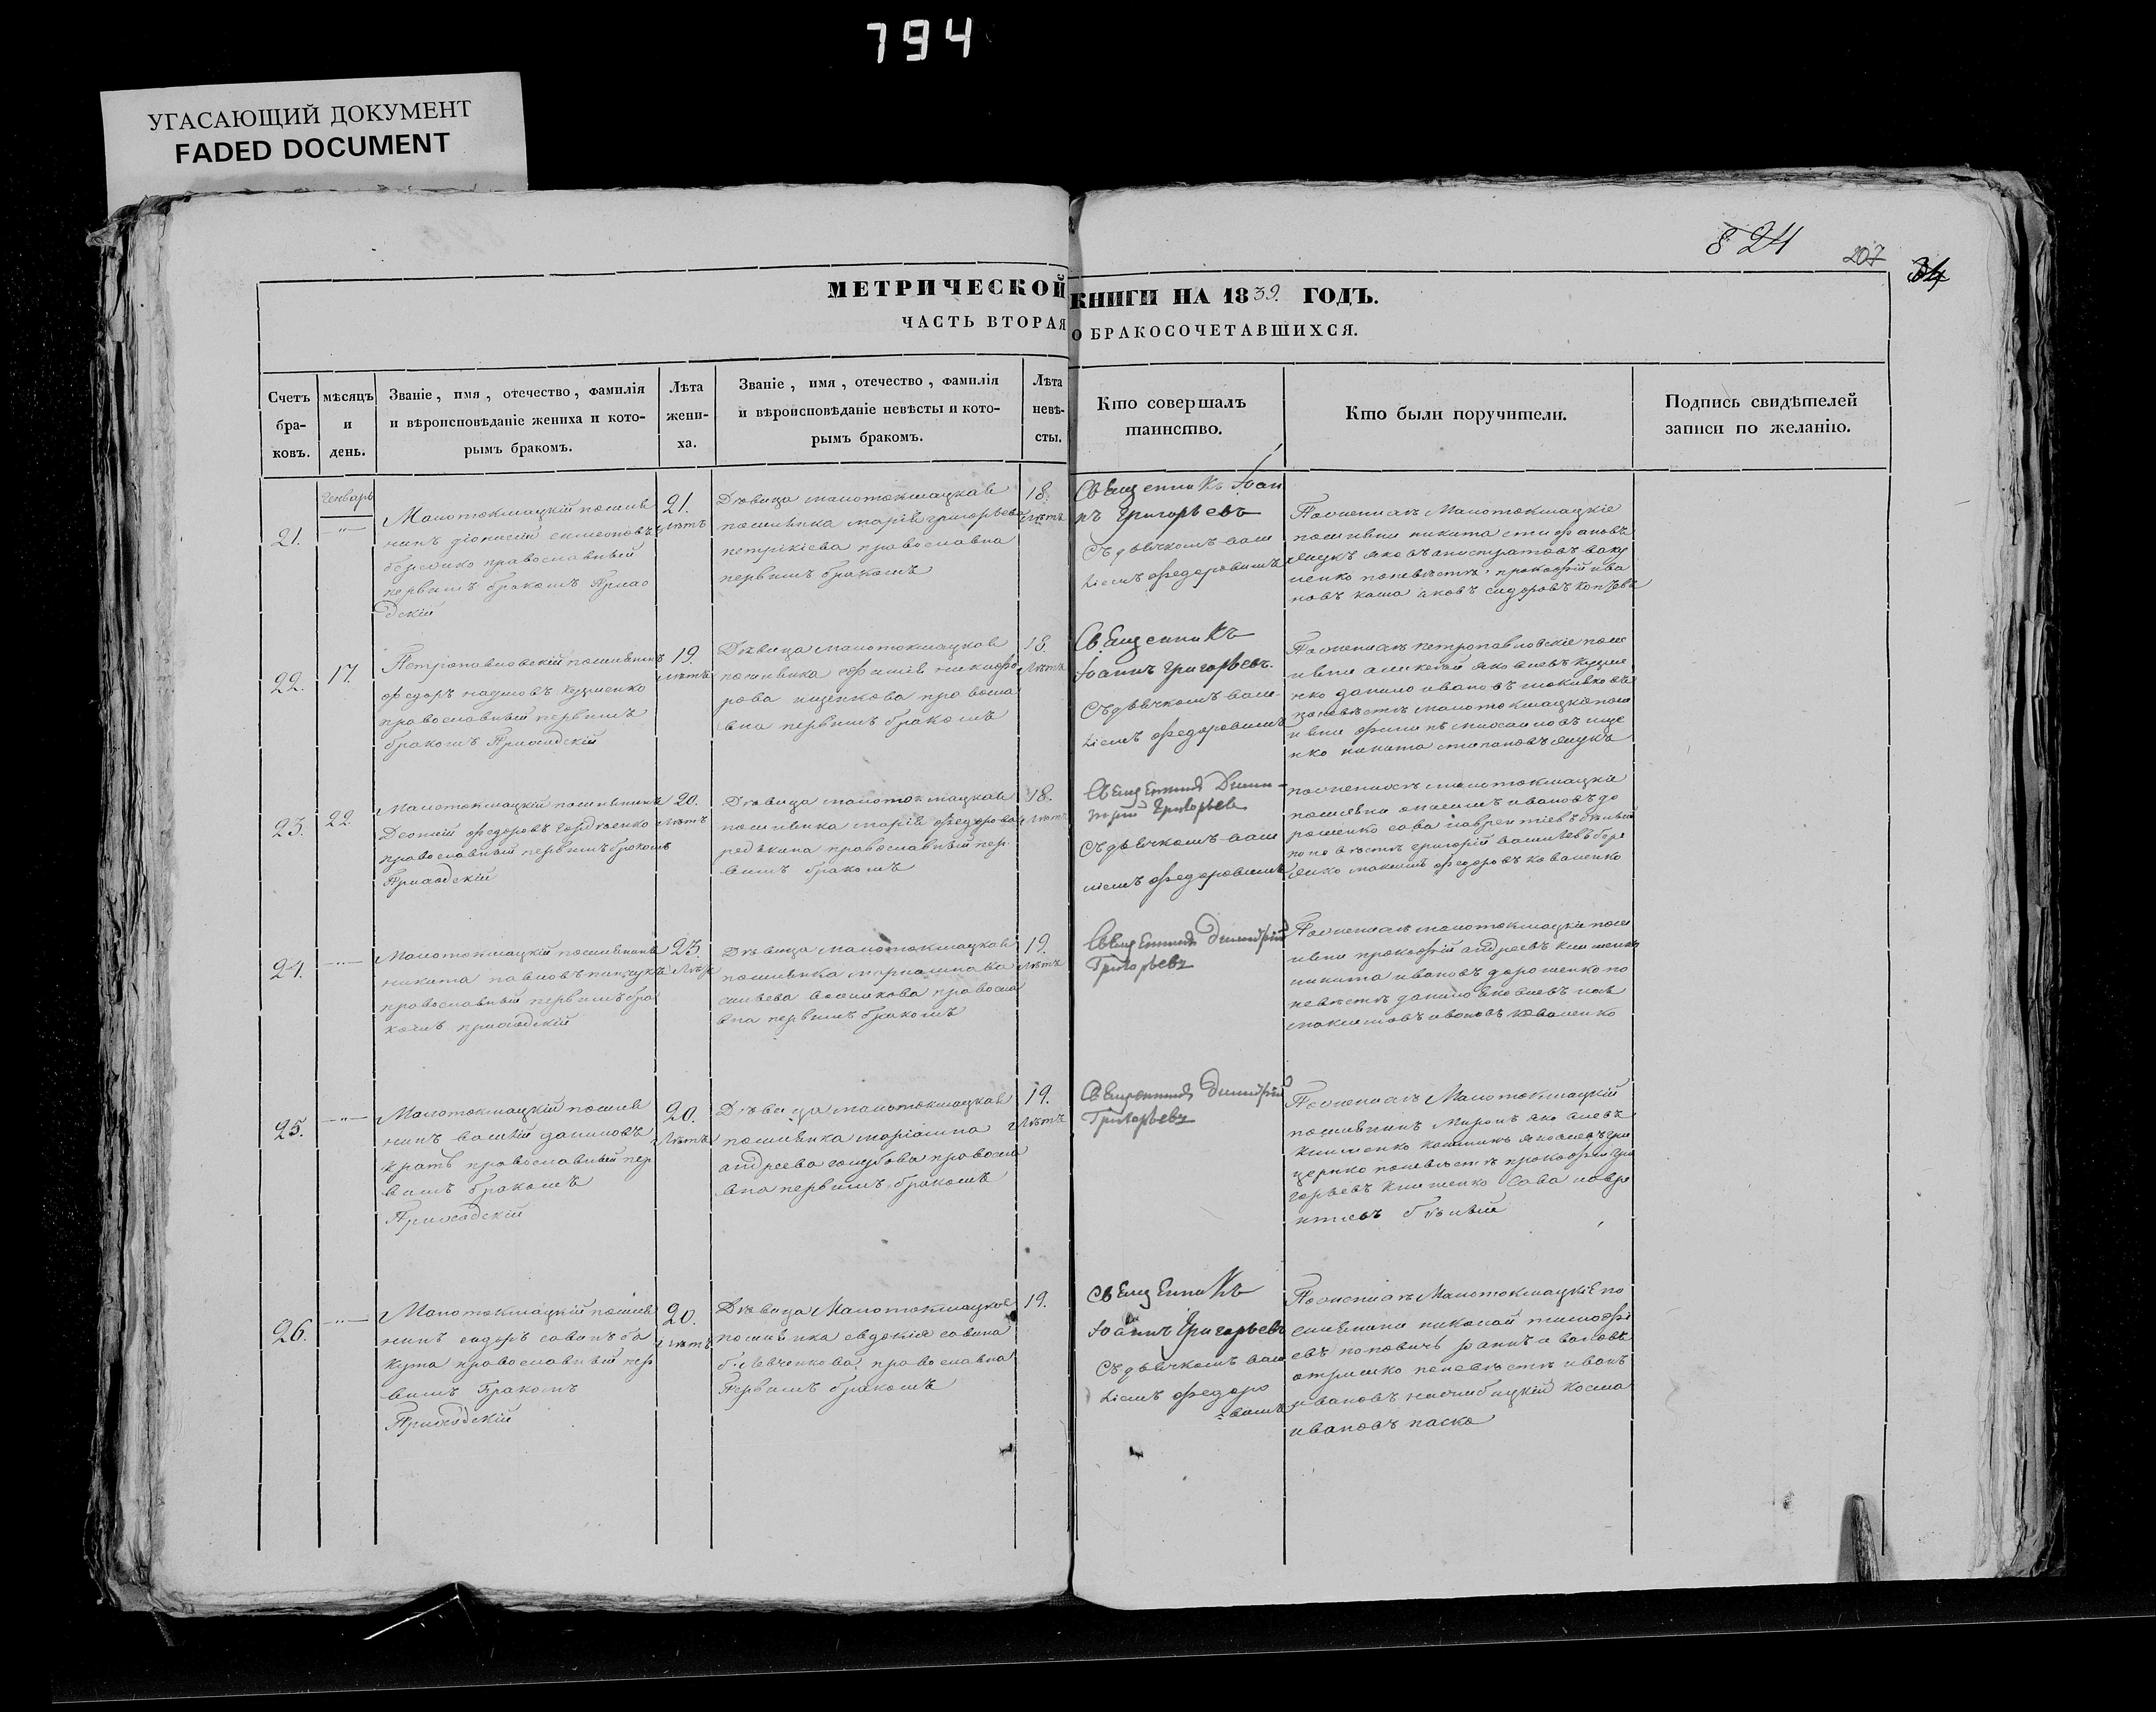 794
УГАСАЮЩИЙ ДОКУМЕНТ
FADED DOCUMENT
8 24
207
34
МЕТРИЧЕСКОЙ КНИГИ НА 1839. ГОДЪ.
ЧАСТЬ ВТОРАЯ О БРАКОСОЧЕТАВШИХСЯ.
Счетъ бра- ковъ.
мѣсяцъ и день.
Званіе, имя, отечество, фамилія
и вѣроисповѣданіе жениха и кото-
рымъ бракомъ.
Лѣта жени- ха.
Званіе, имя, отечество, фамилія
и вѣроисповѣданіе невѣсты и кото-
рымъ бракомъ.
Лѣта невѣ- сты.
Кто совершалъ
таинство.
Кто были поручители.
Подпись свидѣтелей
записи по желанію.
Генварь
21.
Малотокмацкій поселя
нинъ діонисій симеоновъ
православный
первымъ бракомъ Прихо
дскій
21.
лѣтъ
Дѣвица малотокмацкая
поселянка марія григорьева
петрікіева православна
первымъ бракомъ
18.
лѣтъ
Священникъ Іоан
нъ Григорьевъ
Съ дьячкомъ васи
ліемъ федоровымъ
По женихѣ Малотокмацкіе
поселяни никита стифановъ
яцукъ яковъ калистратовъ баку
менко по невѣстѣ прокофій ива
новъ каша яковъ сидоровъ
22.
17.
Петропавловскій поселянинъ
федоръ наумовъ куценко
православный первымъ
бракомъ Приходскій
19.
лѣтъ
Дѣвица малотокмацкая
поселянка ефимія никифо
рова ищенкова правосла
вна первымъ бракомъ
18.
лѣтъ
Священникъ
Іоаннъ Григорьевъ.
Съ дьячкомъ васи-
ліемъ федоровымъ
По женихѣ петропавловскіе посе
ляни алиѯѣй яковлевъ куцие
нко данило ивановъ
по невѣстѣ малотокмацкіе посе
ляни филипъ михайловъ ище
нко никита стипановъ яцукъ
23.
22.
Малотокмацкій поселянинъ
Леонтій федоровъ гордѣенко
православный первымъ бракомъ
Приходскій
20.
лѣтъ
Дѣвица малотокмацкая
поселянка марія федорова
редькина православный пер
вымъ бракомъ
18.
лѣтъ
Священникъ Дими-
трій Григорьев
Съ дьячкомъ васи
ліемъ федоровымъ
по женихѣ малотокмацкіе
поселяни онисимъ ивановъ до
рошенко сава лаврентіевъ бѣлый
по невѣстѣ григорій василіевъ бере
жко максимъ федоровъ коваленко
24.
Малотокмацкій поселянинъ
никита павловъ
православный первымъ бра
комъ приходскій
23.
лѣтъ
Дѣвица малотокмацкая
поселянка маріамна ва
сильева воликова правосла
вна первымъ бракомъ
19.
лѣтъ
Священникъ Димитрій
Григорьевъ
По женихѣ малотокмацкіе посе
ляни прокофій андреевъ клименко
никита ивановъ дорошенко по
невѣстѣ данило яковлевъ
максимовъ ивановъ коваленко
25.
Малотокмацкій поселя
нинъ василій даниловъ
кратъ православный пер
вымъ бракомъ
Приходскій
20.
лѣтъ
Дѣвица малотокмацкая
поселянка маріамна
андреева голубова правосла
вна первымъ бракомъ
19.
лѣтъ
Священникъ Димитрій
Григорьевъ
По женихѣ Малотокмацкій
поселянинъ Миронъ яковлевъ
клименко калиникъ яковлевъ гри
ценко по невѣстѣ прокофій гри
горьевъ клименко Сава лавре
нтіевъ бѣлый
26.
Малотокмацкій поселя
нинъ сидоръ савинъ ба
кута православный пер
вымъ бракомъ
Приходскій
20.
лѣтъ
Дѣвица Малотокмацкая
поселянка евдокія савина
православна
Первымъ бракомъ
19.
Священникъ
Іоаннъ Григорьевъ
Съ дьячкомъ васи
ліемъ федоро
=вымъ
По женихѣ Малотокмацкіе по
селяни николай тимофѣ
евъ поповичь
по невѣстѣ иванъ
ивановъ косма
ивановъ паско